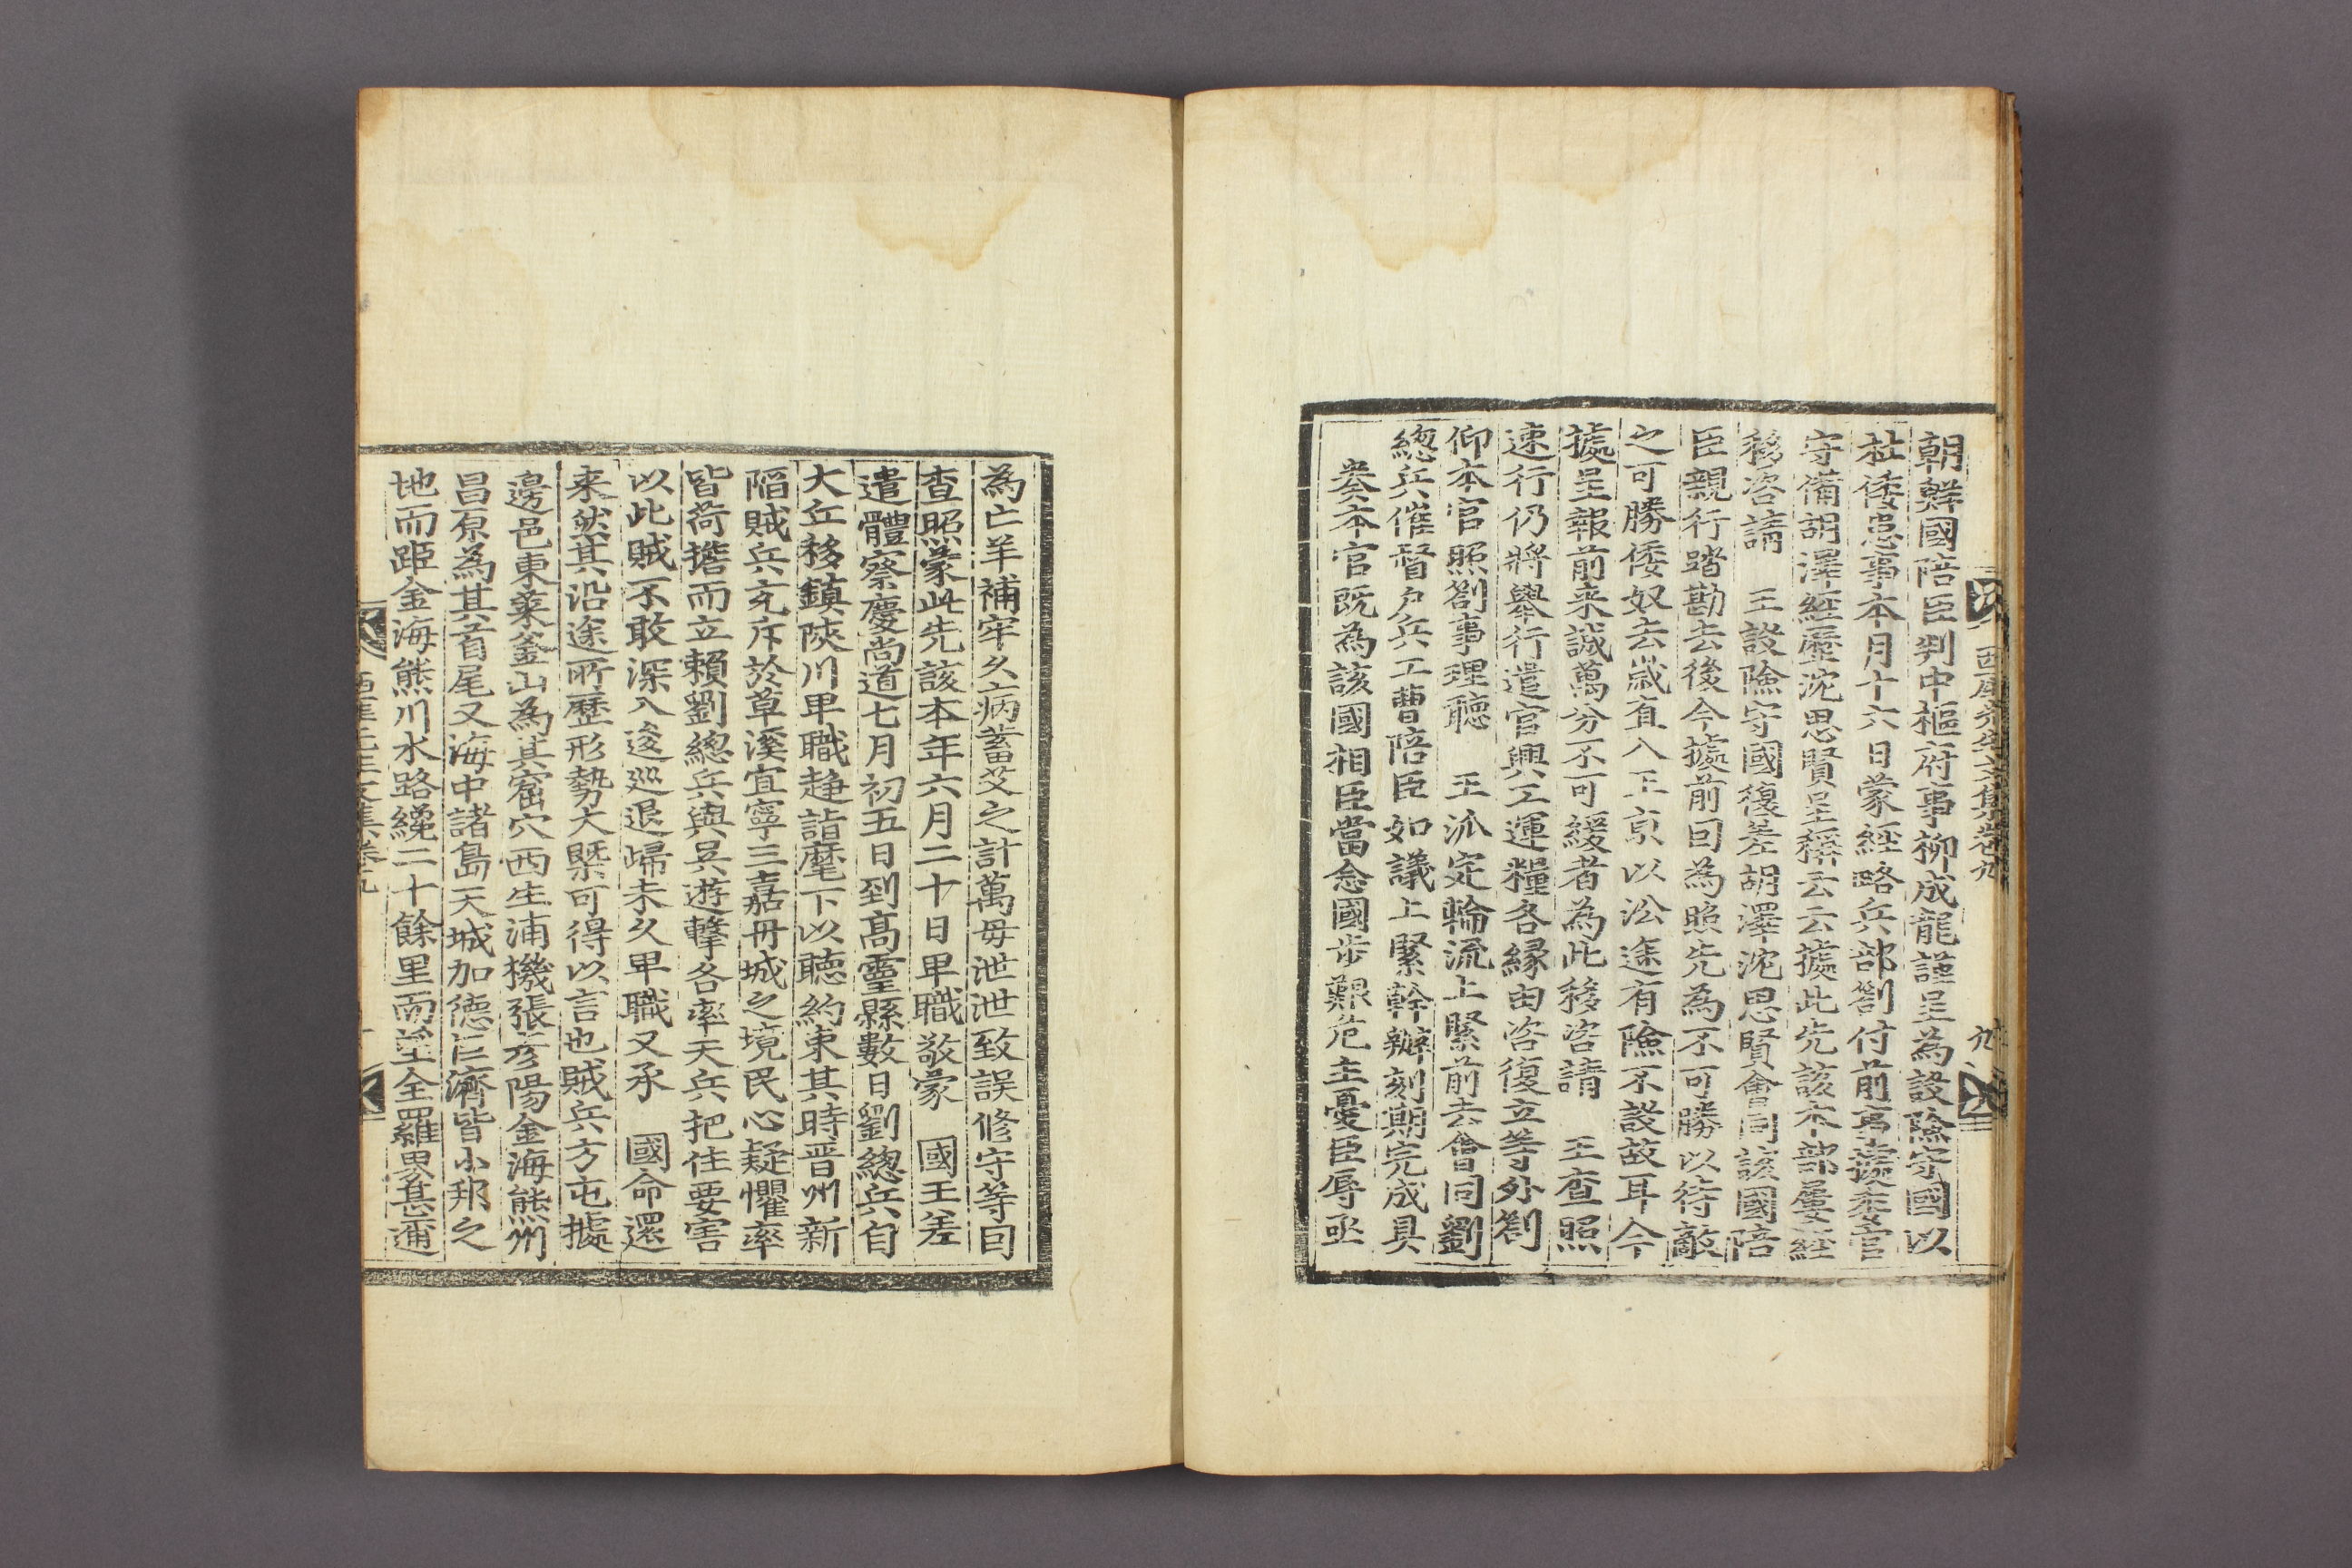 朝鮮國陪臣判中樞府事柳成龍謹呈為設險守國以
杜倭患事本月十六日蒙経略兵部劄付前事據委官
守備胡澤経歷沈思賢呈稱云云據此先該本部屢経
移咨請　王設險守國復差胡澤沈思賢會同該國陪
臣親行踏勘去後今據前囙為照先為不可勝以待敵
之可勝倭奴去歲直入王京以沿途有險不設故耳今
據呈報前来誠萬分不可緩者為此移咨請　王查照
速行仍將舉行遣官興工運糧各縁由咨復立等外劄
仰本官照劄事理聽　王派定輪流上緊前去會同劉
緫兵催督户兵工曹陪臣如議上緊幹辦刻期完成具
奏本官既為該國相臣當念國步艱危主憂臣辱亟
西厓先生文集卷九　九
為亡羊補牢久病蓄艾之計萬毋泄泄致誤修守等囙
查照蒙此先該本年六月二十日卑職敬蒙　國王差
遣體察慶尚道七月初五日到髙靈縣數日劉緫兵自
大丘移鎮陜川卑職趍詣麾下以聴約束其時晋州新
陷賊兵充斥於草溪宜寧三嘉丹城之境民心疑懼率
皆荷擔而立賴劉緫兵與吳遊擊各率天兵把住要害
以此賊不敢深入逡巡退歸未久卑職又承　國命還
来然其沿途所歷形勢大槩可得以言也賊兵方屯據
邊邑東萊釜山為其窟穴西生浦機張彦陽金海熊州
昌原為其首尾又海中諸島天城加德巨濟皆小邦之
地而距金海熊川水路纔二十餘里而望全羅界甚邇
西厓先生文集卷九